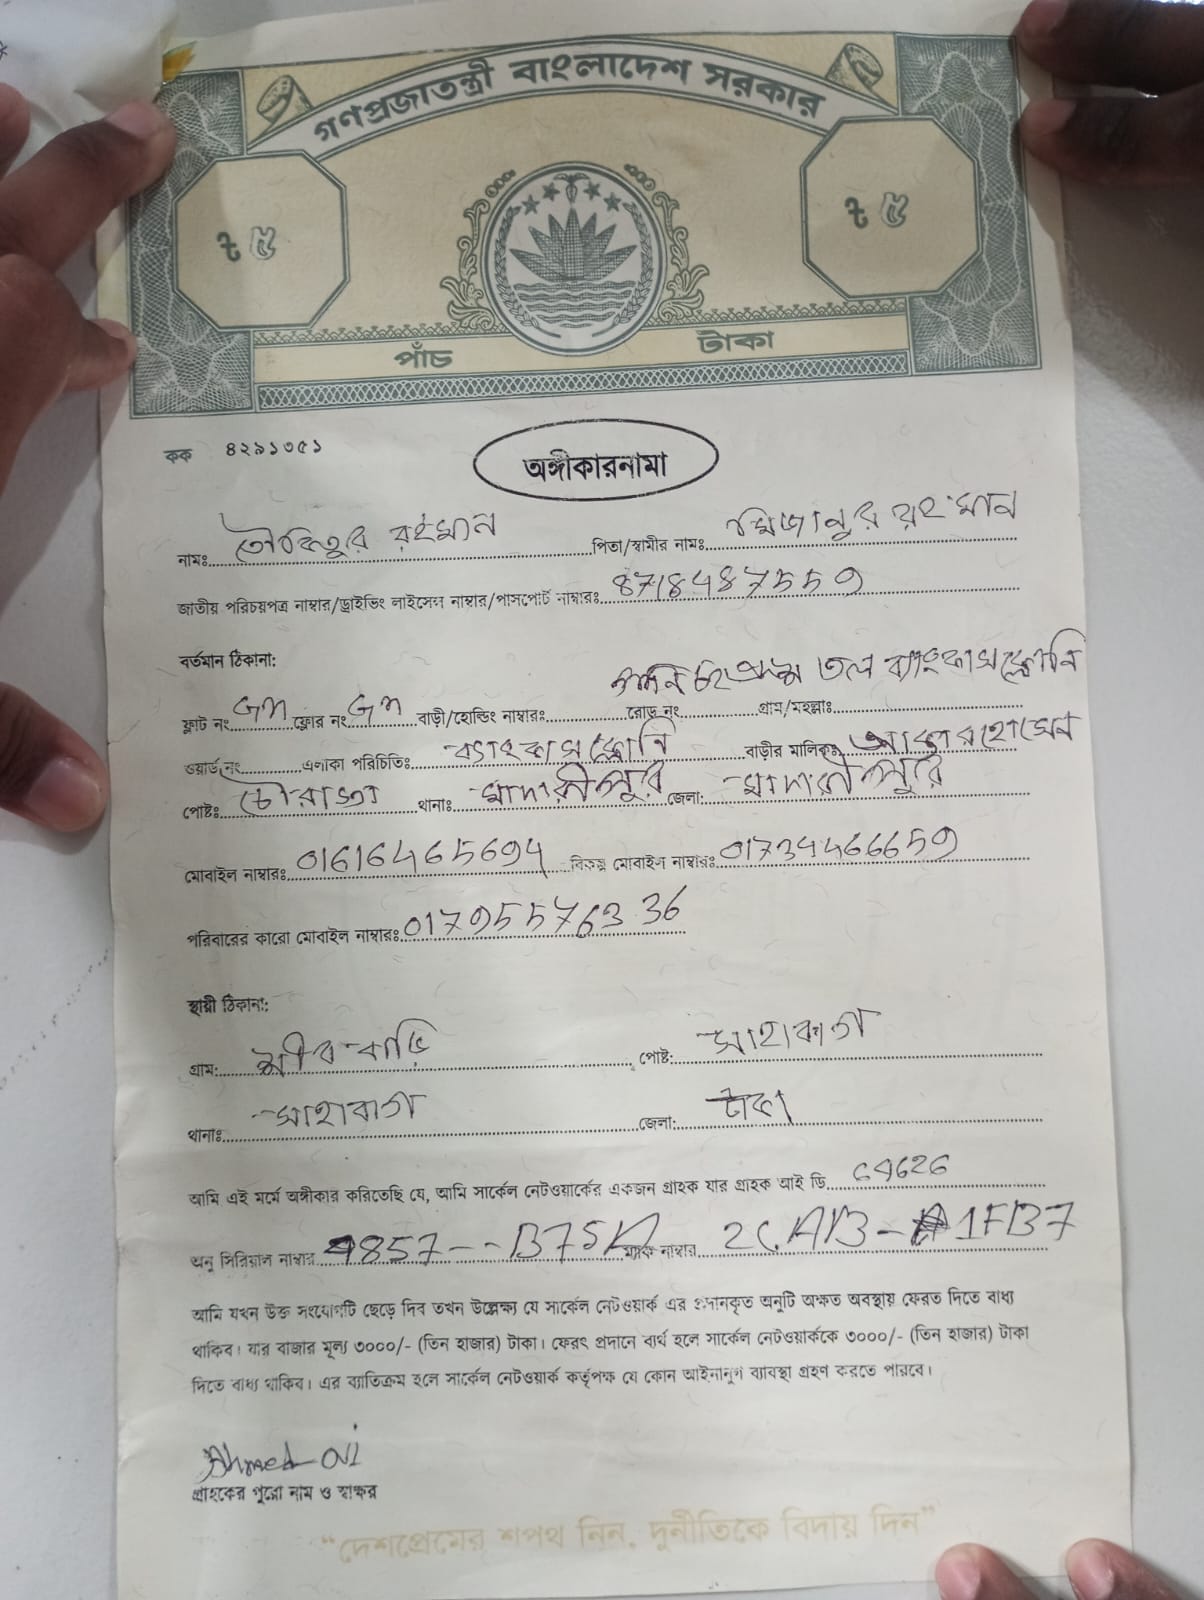 গণপ্রজাতন্ত্রী বাংলাদেশ সরকার
৳ ৫ ৳ ৫
পাঁচ টাকা
কক ৪২৯১৩৫১
অঙ্গীকারনামা
নামঃ তৌফিকুর রহমান পিতা/স্বামীর নামঃ মিজানুর রহমান
জাতীয় পরিচয়পত্র নাম্বার/ড্রাইভিং লাইসেন্স নাম্বার/পাসপোর্ট নাম্বারঃ 8718487559
বর্তমান ঠিকানা:
ফ্লাট নং ফ্লোর নং বাড়ী/হোল্ডিং নাম্বারঃ রোড নং গ্রাম/মহল্লাঃ তলা ব্যাংকাস কলোনি
ওয়ার্ড নং এলাকা পরিচিতিঃ ব্যাংকাস কলোনি বাড়ীর মালিকঃ হোসেন
পোষ্টঃ চৌরাস্তা থানাঃ মাদারীপুর জেলা: মাদারীপুর
মোবাইল নাম্বারঃ 01616465694 বিকল্প মোবাইল নাম্বারঃ 01734466659
পরিবারের কারো মোবাইল নাম্বারঃ 01795576336
স্থায়ী ঠিকানা:
গ্রাম: মীর বাড়ি পোষ্ট: সাহাবাগ
থানাঃ সাহাবাগ জেলা: ঢাকা
আমি এই মর্মে অঙ্গীকার করিতেছি যে, আমি সার্কেল নেটওয়ার্কের একজন গ্রাহক যার গ্রাহক আই ডি 64626
অনু সিরিয়াল নাম্বার ম্যাক নাম্বার
আমি যখন উক্ত সংযোগটি ছেড়ে দিব তখন উল্লেক্ষ্য যে সার্কেল নেটওয়ার্ক এর প্রদানকৃত অনুটি অক্ষত অবস্থায় ফেরত দিতে বাধ্য
থাকিব। যার বাজার মূল্য ৩০০০/- (তিন হাজার) টাকা। ফেরৎ প্রদানে ব্যর্থ হলে সার্কেল নেটওয়ার্ককে ৩০০০/- (তিন হাজার) টাকা
দিতে বাধ্য থাকিব। এর ব্যাতিক্রম হলে সার্কেল নেটওয়ার্ক কর্তৃপক্ষ যে কোন আইনানুগ ব্যাবস্থা গ্রহণ করতে পারবে।
Ahmed
গ্রাহকের পুরো নাম ও স্বাক্ষর
"দেশপ্রেমের শপথ নিন, দুর্নীতিকে বিদায় দিন"